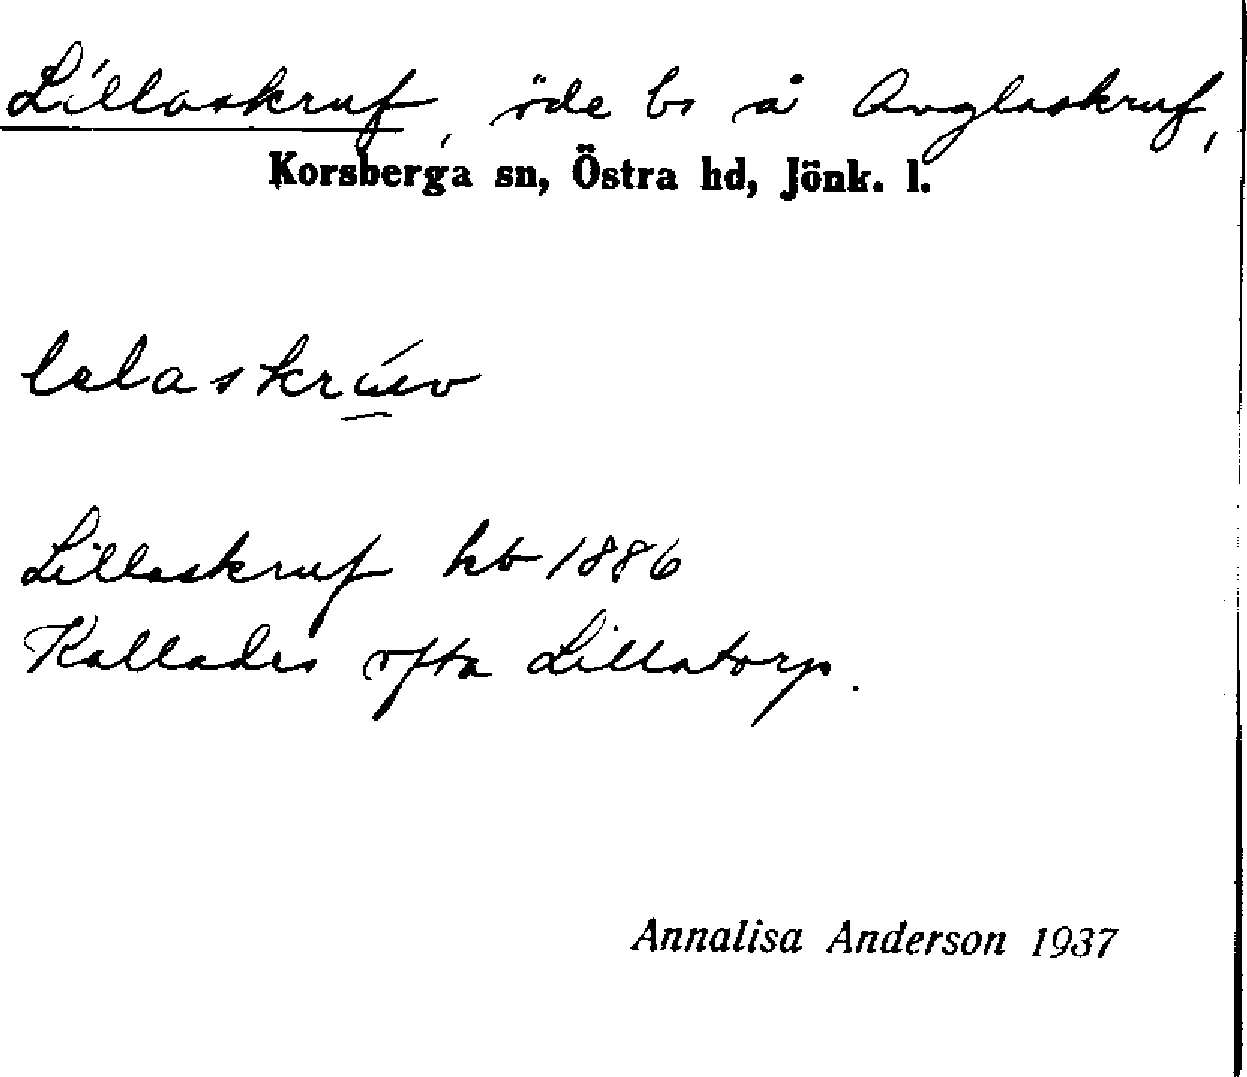 Lillaskruf, öde bs å Anglaskruf,
Korsberga sn, Östra hd, Jönk. l.
Lillaskruf hb 1886
Kallades ofta Lillatorp.
Annalisa Anderson 1937